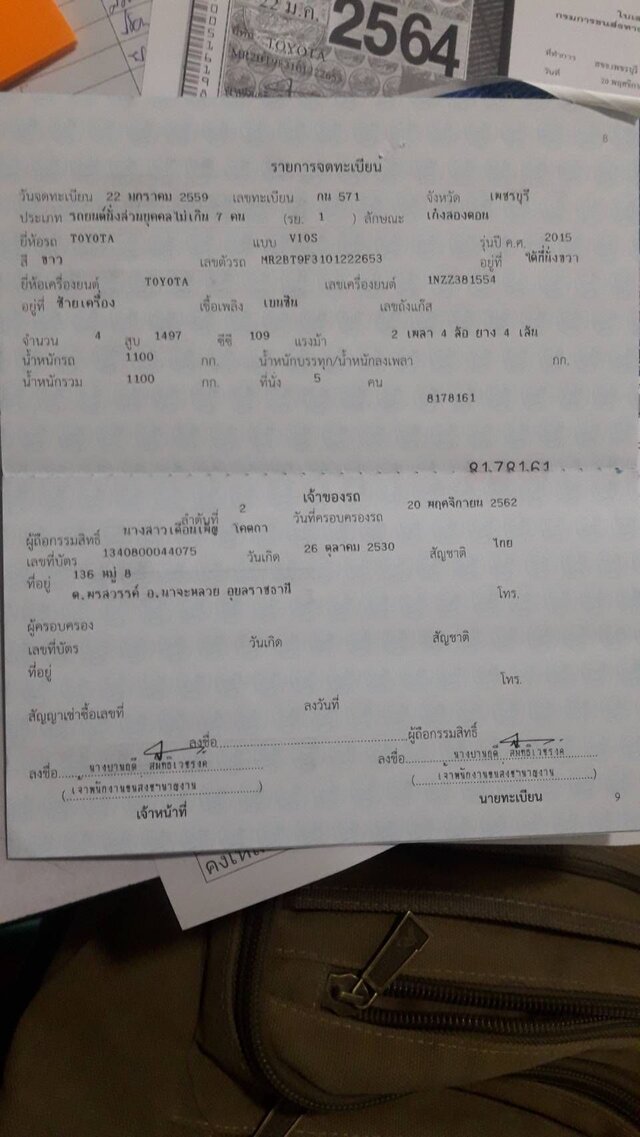 22 ม.ค.
2564
TOYOTA
กรมการขนส่งทาง
ที่ทำการ
วันที่
8
รายการจดทะเบียน
วันจดทะเบียน 22 มกราคม 2559 เลขทะเบียน กน 571 จังหวัด เพชรบุรี
ประเภท รถยนต์นั่งส่วนบุคคลไม่เกิน 7 คน (รย. 1 ) ลักษณะ เก๋งสองตอน
ยี่ห้อรถ TOYOTA แบบ VIOS รุ่นปี ค.ศ. 2015
สี ขาว เลขตัวรถ MR2BT9F3101222653 อยู่ที่ ใต้ที่นั่งขวา
ยี่ห้อเครื่องยนต์ TOYOTA เลขเครื่องยนต์ 1NZZ381554
อยู่ที่ ซ้ายเครื่อง เชื้อเพลิง เบนซิน เลขถังแก๊ส
จำนวน 4 สูบ 1497 ซีซี 109 แรงม้า 2 เพลา 4 ล้อ ยาง 4 เส้น
น้ำหนักรถ 1100 กก. น้ำหนักบรรทุก/น้ำหนักลงเพลา กก.
น้ำหนักรวม 1100 กก. ที่นั่ง 5 คน
8178161
8178161
เจ้าของรถ
ลำดับที่ 2 วันที่ครอบครองรถ 20 พฤศจิกายน 2562
ผู้ถือกรรมสิทธิ์ นางสาวเดือนเพ็ญ โคตถา
เลขที่บัตร 1340800044075 วันเกิด 26 ตุลาคม 2530 สัญชาติ ไทย
ที่อยู่ 136 หมู่ 8
ต.พรสวรรค์ อ.นาจะหลวย อุบลราชธานี โทร.
ผู้ครอบครอง
เลขที่บัตร วันเกิด สัญชาติ
ที่อยู่ โทร.
สัญญาเช่าซื้อเลขที่ ลงวันที่
ลงชื่อ ผู้ถือกรรมสิทธิ์
ลงชื่อ ลงชื่อ
(เจ้าพนักงานขนส่งชำนาญงาน) (เจ้าพนักงานขนส่งชำนาญงาน)
เจ้าหน้าที่ นายทะเบียน
9